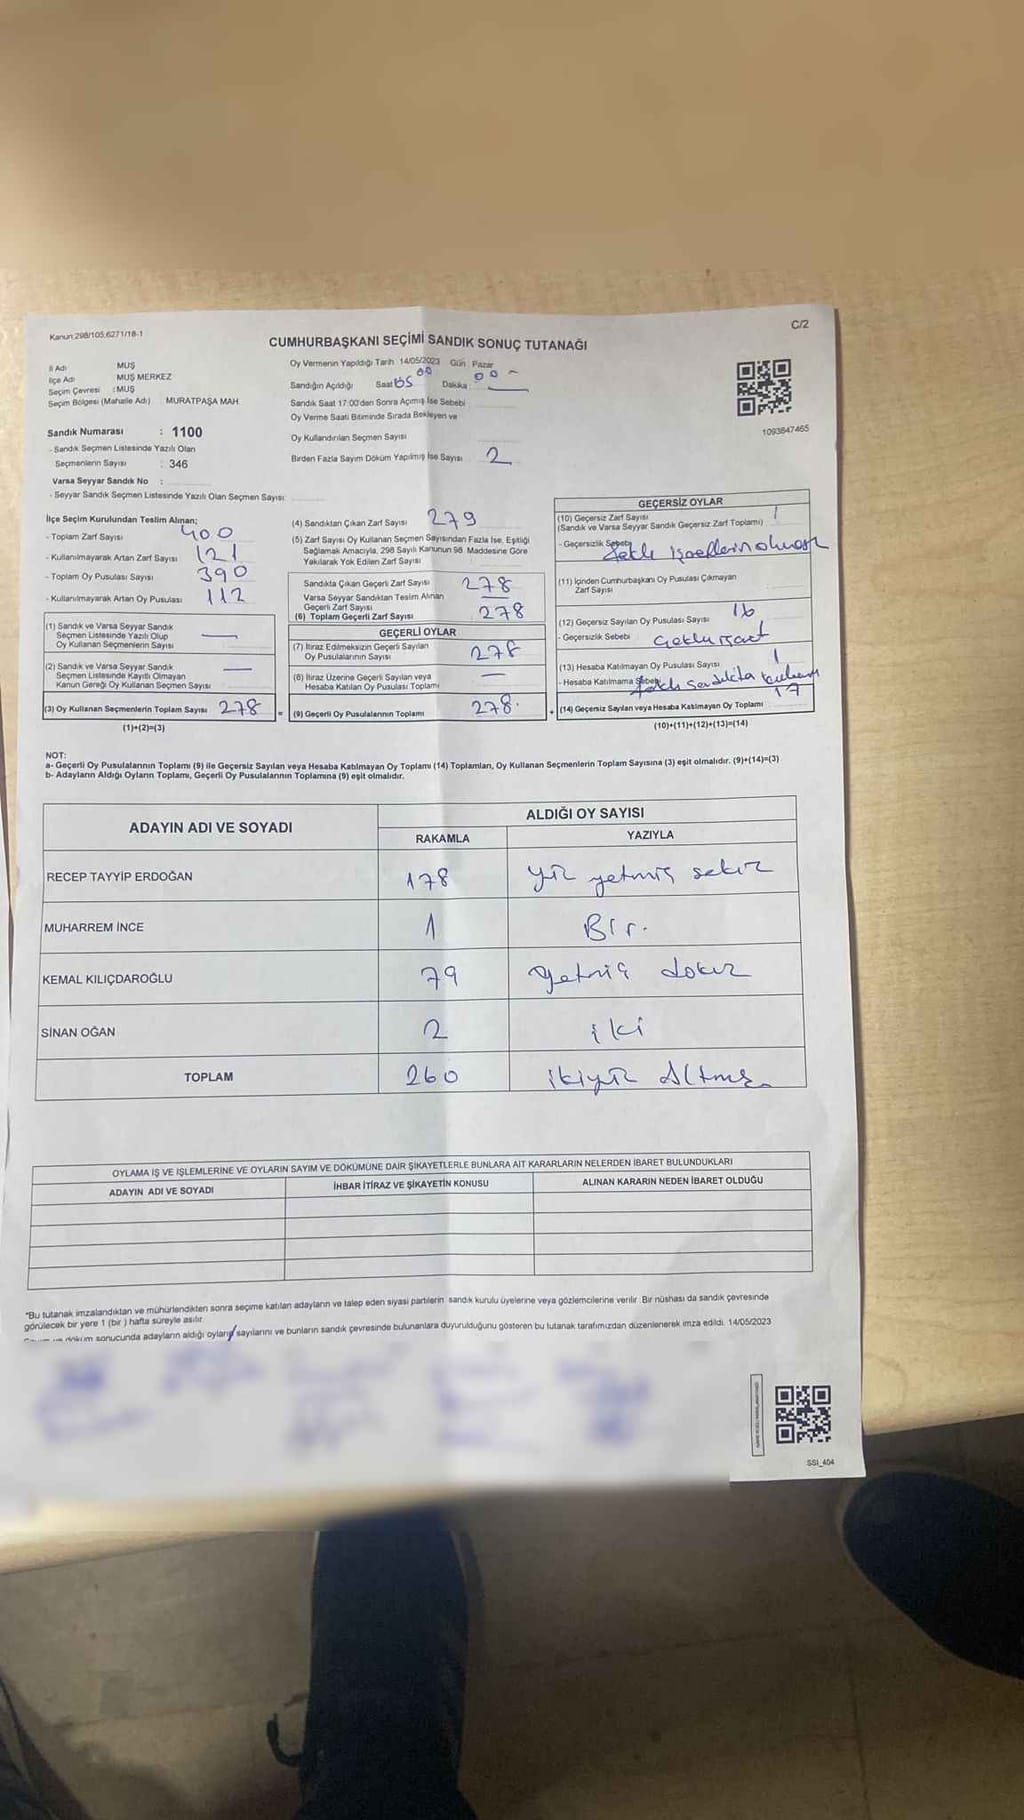 Kanun:298/105,6271/18-1
C/2
CUMHURBAŞKANI SEÇİMİ SANDIK SONUÇ TUTANAĞI
İl Adı MUŞ
İlçe Adı MUŞ MERKEZ
Seçim Çevresi : MUŞ
Seçim Bölgesi (Mahalle Adı) MURATPAŞA MAH.
Sandık Numarası : 1100
- Sandık Seçmen Listesinde Yazılı Olan
Seçmenlerin Sayısı : 346
Varsa Seyyar Sandık No :
- Seyyar Sandık Seçmen Listesinde Yazılı Olan Seçmen Sayısı:
Oy Vermenin Yapıldığı Tarih 14/05/2023 Gün: Pazar
Sandığın Açıldığı Saat 05 00 Dakika 00 -
Sandık Saat 17:00'den Sonra Açımış İse Sebebi
Oy Verme Saati Bitiminde Sırada Bekleyen ve
Oy Kullandırılan Seçmen Sayısı
Birden Fazla Sayım Döküm Yapılmış İse Sayısı 2
1093847465
İlçe Seçim Kurulundan Teslim Alınan;
- Toplam Zarf Sayısı 400
- Kullanılmayarak Artan Zarf Sayısı 121
- Toplam Oy Pusulası Sayısı 390
- Kullanılmayarak Artan Oy Pusulası 112
(1) Sandık ve Varsa Seyyar Sandık
Seçmen Listesinde Yazılı Olup
Oy Kullanan Seçmenlerin Sayısı —
(2) Sandık ve Varsa Seyyar Sandık
Seçmen Listesinde Kayıtlı Olmayan
Kanun Gereği Oy Kullanan Seçmen Sayısı —
(3) Oy Kullanan Seçmenlerin Toplam Sayısı 278
(1)+(2)=(3)
(4) Sandıktan Çıkan Zarf Sayısı 279
(5) Zarf Sayısı Oy Kullanan Seçmen Sayısından Fazla İse, Eşitliği
Sağlamak Amacıyla, 298 Sayılı Kanunun 98. Maddesine Göre
Yakılarak Yok Edilen Zarf Sayısı
Sandıkta Çıkan Geçerli Zarf Sayısı 278
Varsa Seyyar Sandıktan Teslim Alınan
Geçerli Zarf Sayısı —
(6) Toplam Geçerli Zarf Sayısı 278
GEÇERLİ OYLAR
(7) İtiraz Edilmeksizin Geçerli Sayılan
Oy Pusulalarının Sayısı 278
(8) İtiraz Üzerine Geçerli Sayılan veya
Hesaba Katılan Oy Pusulası Toplamı —
= (9) Geçerli Oy Pusulalarının Toplamı 278.
GEÇERSİZ OYLAR
(10) Geçersiz Zarf Sayısı 1
(Sandık ve Varsa Seyyar Sandık Geçersiz Zarf Toplamı)
- Geçersizlik Sebebi
(11) İçinden Cumhurbaşkanı Oy Pusulası Çıkmayan
Zarf Sayısı
(12) Geçersiz Sayılan Oy Pusulası Sayısı 16
- Geçersizlik Sebebi
(13) Hesaba Katılmayan Oy Pusulası Sayısı 1
- Hesaba Katılmama Sebebi
+ (14) Geçersiz Sayılan veya Hesaba Katılmayan Oy Toplamı 17
(10)+(11)+(12)+(13)=(14)
NOT:
a- Geçerli Oy Pusulalarının Toplamı (9) ile Geçersiz Sayılan veya Hesaba Katılmayan Oy Toplamı (14) Toplamları, Oy Kullanan Seçmenlerin Toplam Sayısına (3) eşit olmalıdır. (9)+(14)=(3)
b- Adayların Aldığı Oyların Toplamı, Geçerli Oy Pusulalarının Toplamına (9) eşit olmalıdır.
ADAYIN ADI VE SOYADI
ALDIĞI OY SAYISI
RAKAMLA YAZIYLA
RECEP TAYYİP ERDOĞAN 178 yüz yetmiş sekiz
MUHARREM İNCE 1 Bir.
KEMAL KILIÇDAROĞLU 79 yetmiş dokuz
SİNAN OĞAN 2 iki
TOPLAM 260 ikiyüz Altmış
OYLAMA İŞ VE İŞLEMLERİNE VE OYLARIN SAYIM VE DÖKÜMÜNE DAİR ŞİKAYETLERLE BUNLARA AİT KARARLARIN NELERDEN İBARET BULUNDUKLARI
ADAYIN ADI VE SOYADI İHBAR İTİRAZ VE ŞİKAYETİN KONUSU ALINAN KARARIN NEDEN İBARET OLDUĞU
"Bu tutanak imzalandıktan ve mühürlendikten sonra seçime katılan adayların ve talep eden siyasi partilerin sandık kurulu üyelerine veya gözlemcilerine verilir. Bir nüshası da sandık çevresinde
görülecek bir yere 1 (bir) hafta süreyle asılır.
döküm sonucunda adayların aldığı oyların sayılarını ve bunların sandık çevresinde bulunanlara duyurulduğunu gösteren bu tutanak tarafımızdan düzenlenerek imza edildi. 14/05/2023
SSI_404